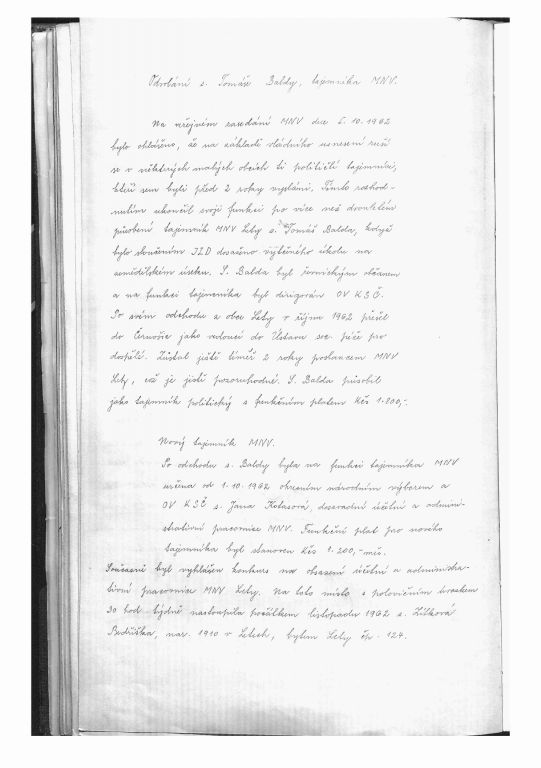 Odvolání s. Tomáše Baldy, tajemníka MNV.
Na veřejném zasedání MNV dne 5. 10. 1962
bylo ohlášeno, že na základě vládního usnesení ruší
se v některých malých obcích ti političtí tajemníci,
kteří sem byli před 2 roky vysláni. Tímto rozhod-
nutím ukončil svoji funkci po více než dvouletém
působení tajemník MNV Lety s. Tomáš Balda, když
bylo sloučením JZD dosaženo výtečného úkolu na
zemědělském úseku. S. Balda byl černickým občanem
a na funkci tajemníka byl dirigován OV KSČ.
Po svém odchodu z obce Lety v říjnu 1962 přešel
do Černošic jako vedoucí do Ústavu soc. péče pro
dospělé. Zůstal ještě téměř 2 roky poslancem MNV
Lety, což je jistě pozoruhodné. S. Balda působil
jako tajemník politický s funkčním platem Kčs 1.800,-.
Nový tajemník MNV.
Po odchodu s. Baldy byla na funkci tajemníka MNV
určena od 1. 10. 1962 okresním národním výborem a
OV KSČ s. Jana Kotasová, dosavadní účetní a admini-
strativní pracovnice MNV. Funkční plat pro nového
tajemníka byl stanoven Kčs 1.200,- měs.
Současně byl vyhlášen konkurs na obsazení účetní a administra-
tivní pracovnice MNV Lety. Na toto místo s polovičním úvazkem
30 hod. týdně nastoupila počátkem listopadu 1962 s. Zítková
Bedřiška, nar. 1910 v Letech, bytem Lety čp. 124.